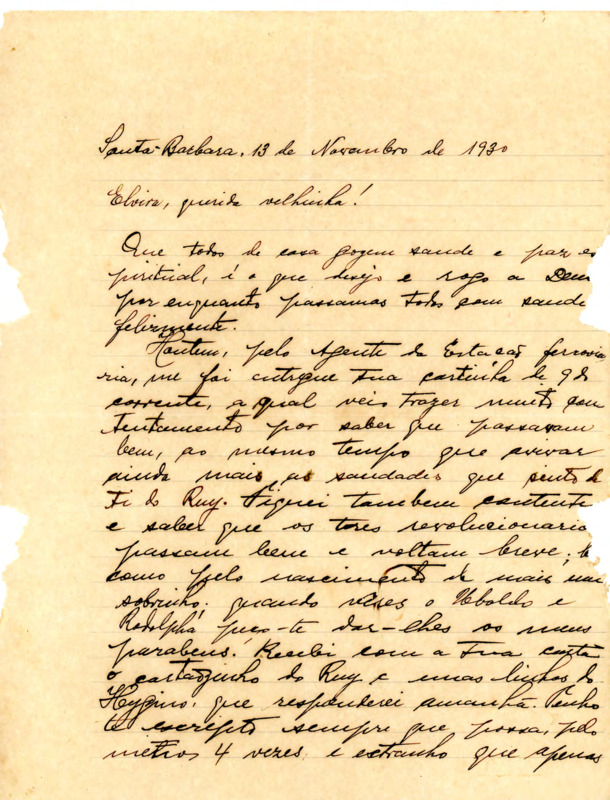 Santa-Barbara, 13 de Novembro de 1930
Elvira, querida velhinha!
Que todos de casa gozem saude e paz es
piritual, é o que desejo e rogo a Deus
por enquanto passamos todos com saude
felizmente.
Hontem, pelo Agente da Estacão ferrovia
ria, me foi entregue tua cartinha de 9 do
corrente, a qual veis trazer muito con
tentamento por saber que passavam
bem, ao mesmo tempo que avivar
ainda mais, as saudades que sinto de
Ti do Ruy. Fiquei tambem contente
e saber que os tres revolucionario
passam bem e voltam breve;
como pelo nascimento de mais um
sobrinho; quando vires o Uboldo e
Rodolpho, peço-te dar-lhes os meus
parabens. Recibi com a tua carta
o cartãozinho do Ruy e umas linhas do
Hygino, que responderei amanhã. Tenho
te escripto sempre que possa, pelo
metros 4 vezes e extranho que apenas